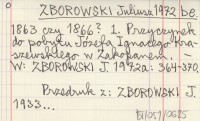 ZBOROWSKI Juliusz 1972 be.
1863 czy 1866? 1. Przyczynek
do pobytu Józefa Ignacego Kra-
szewskiego w Zakopanem.
W: ZBOROWSKI J. 1972a: 364-370.
Przedruk z: ZBOROWSKI J.
1933...